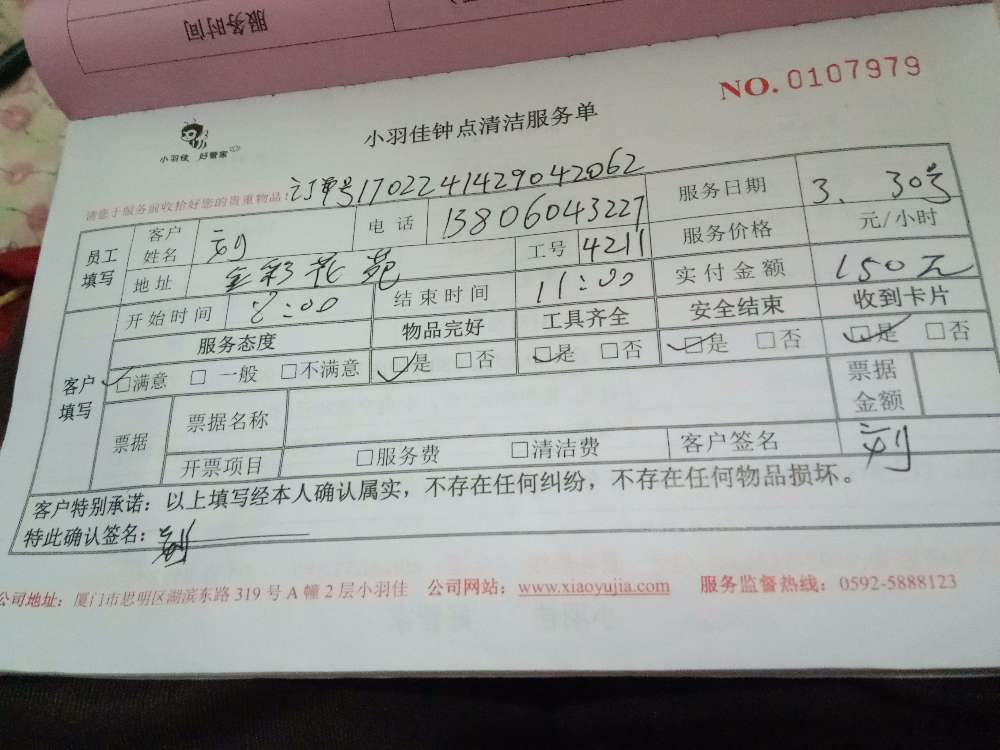 服务时间
NO. 0107979
小羽佳 好管家
小羽佳钟点清洁服务单
请您于服务前收拾好您的贵重物品: 订单号1702241429042062
员工填写 客户姓名 刘 电话 13806043227 服务日期 3. 30号
地址 金彩花苑 工号 4211 服务价格 元/小时
客户填写 开始时间 8:00 结束时间 11:00 实付金额 150元
服务态度 物品完好 工具齐全 安全结束 收到卡片
☑满意 □一般 □不满意 ☑是 □否 ☑是 □否 ☑是 □否 ☑是 □否
票据 票据名称 票据金额
开票项目 □服务费 □清洁费 客户签名 刘
客户特别承诺：以上填写经本人确认属实，不存在任何纠纷，不存在任何物品损坏。
特此确认签名：刘
公司地址：厦门市思明区湖滨东路 319 号 A 幢 2 层小羽佳 公司网站：www.xiaoyujia.com 服务监督热线：0592-5888123